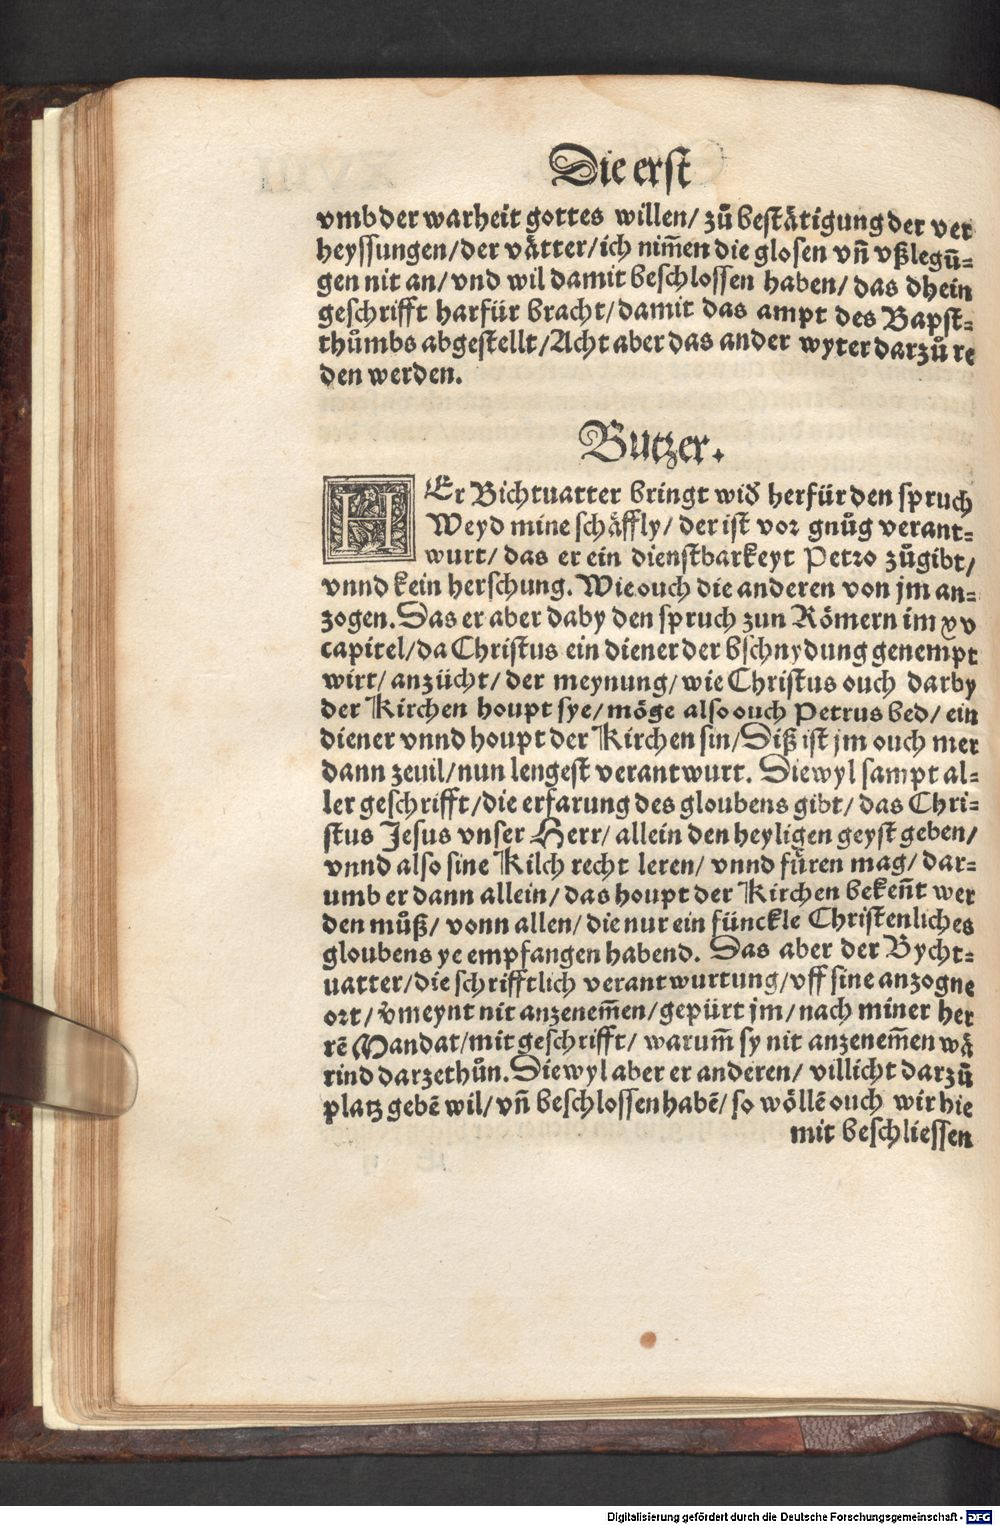 Die erst
vmb der warheit gottes willen/ zů bestätigung der ver
heyssungen/der vätter/ich nim̃en die glosen vñ vßlegũ⸗
gen nit an/ vnd wil damit beschlossen haben/ das dhein
geschrifft harfür bracht/damit das ampt des Bapst⸗
thůmbs abgestellt/Acht aber das ander wyter darzů re
den werden.
Butzer.
HEr Bichtuatter bringt wid̕ herfür den spruch
Weyd mine schäffly/ der ist vor gnůg verant⸗
wurt/ das er ein dienstbarkeyt Petro zůgibt/
vnnd kein herschung. Wie ouch die anderen von jm an⸗
zogen. Das er aber daby den spruch zun Römern im xv
capitel/da Christus ein diener der bschnydung genempt
wirt/ anzücht/ der meynung/ wie Christus ouch darby
der Kirchen houpt sye/ möge also ouch Petrus bed/ ein
diener vnnd houpt der Kirchen sin/Diß ist jm ouch mer
dann zeuil/nun lengest verantwurt. Diewyl sampt al⸗
ler geschrifft/die erfarung des gloubens gibt/ das Chri⸗
stus Jesus vnser Herr/ allein den heyligen geyst geben/
vnnd also sine Kilch recht leren/ vnnd fůren mag/ dar⸗
umb er dann allein/ das houpt der Kirchen bekeñt wer
den můß/ vonn allen/ die nur ein fünckle Christenliches
gloubens ye empfangen habend. Das aber der Bycht⸗
uatter/die schrifftlich verantwurtung/vff sine anzogne
ort/ v̕meynt nit anzenem̃en/gepürt jm/ nach miner her
rẽ Mandat/mit geschrifft/ warum̃ sy nit anzenem̃en wä
rind darzethůn. Diewyl aber er anderen/ villicht darzů
platz gebẽ wil/ vñ beschlossen habẽ/ so wöllẽ ouch wir hie
mit beschliessen
Digitalisierung gefördert durch die Deutsche Forschungsgemeinschaft - DFG